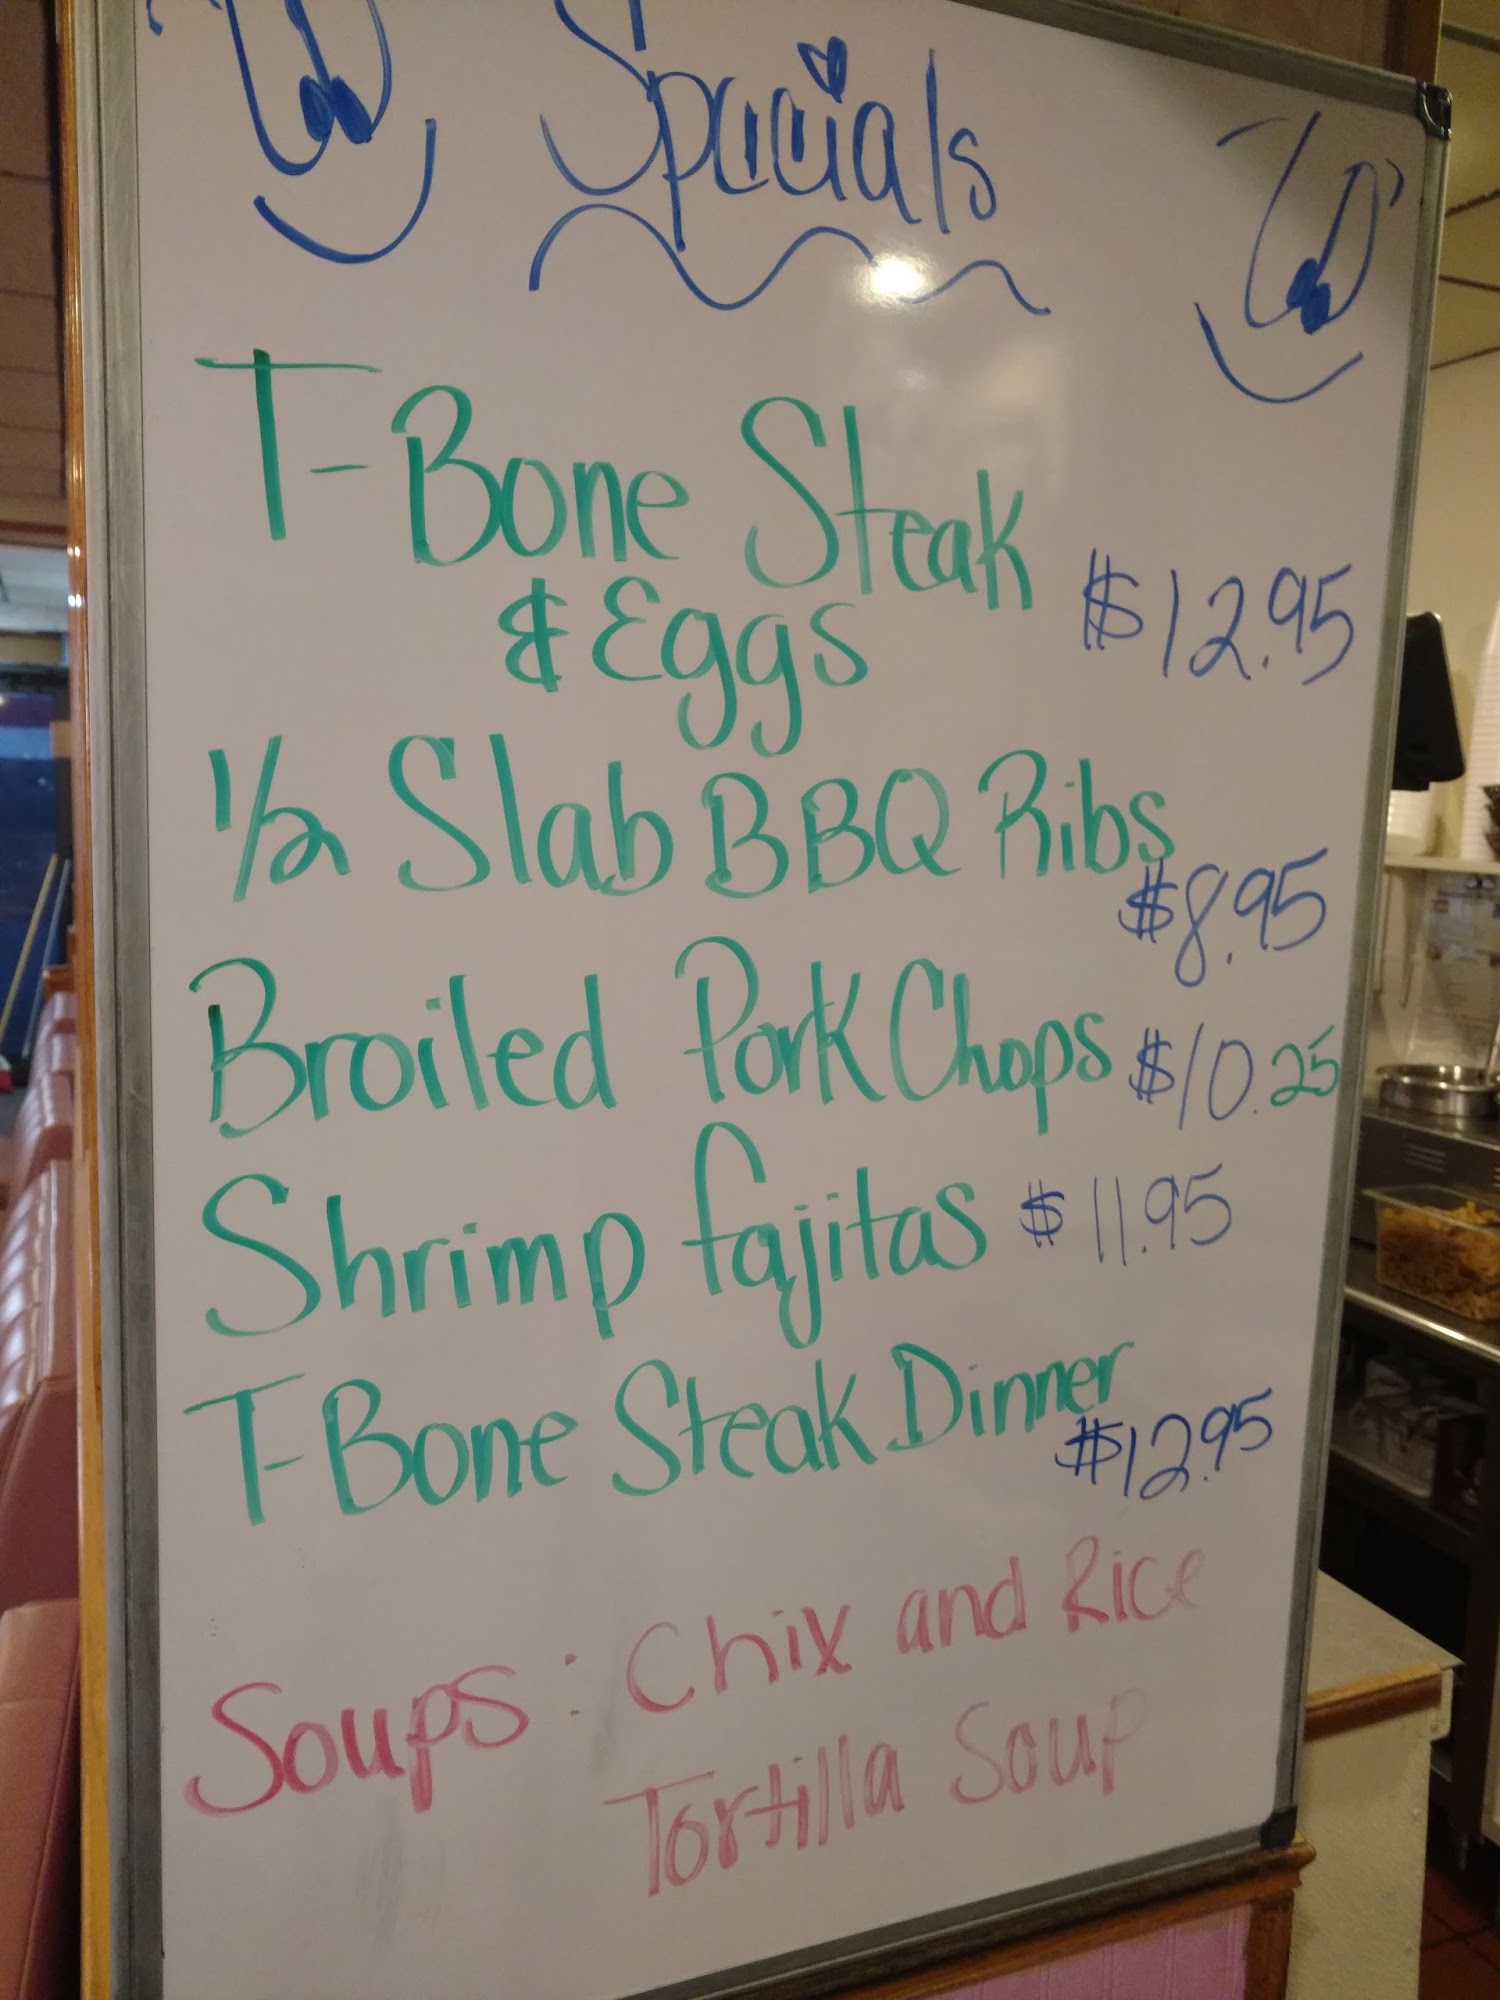 Specials
T-Bone Steak
& Eggs $12.95
1/2 Slab BBQ Ribs
$8.95
Broiled Pork Chops $10.25
Shrimp fajitas $11.95
T-Bone Steak Dinner
$12.95
Soups: Chix and Rice
Tortilla Soup